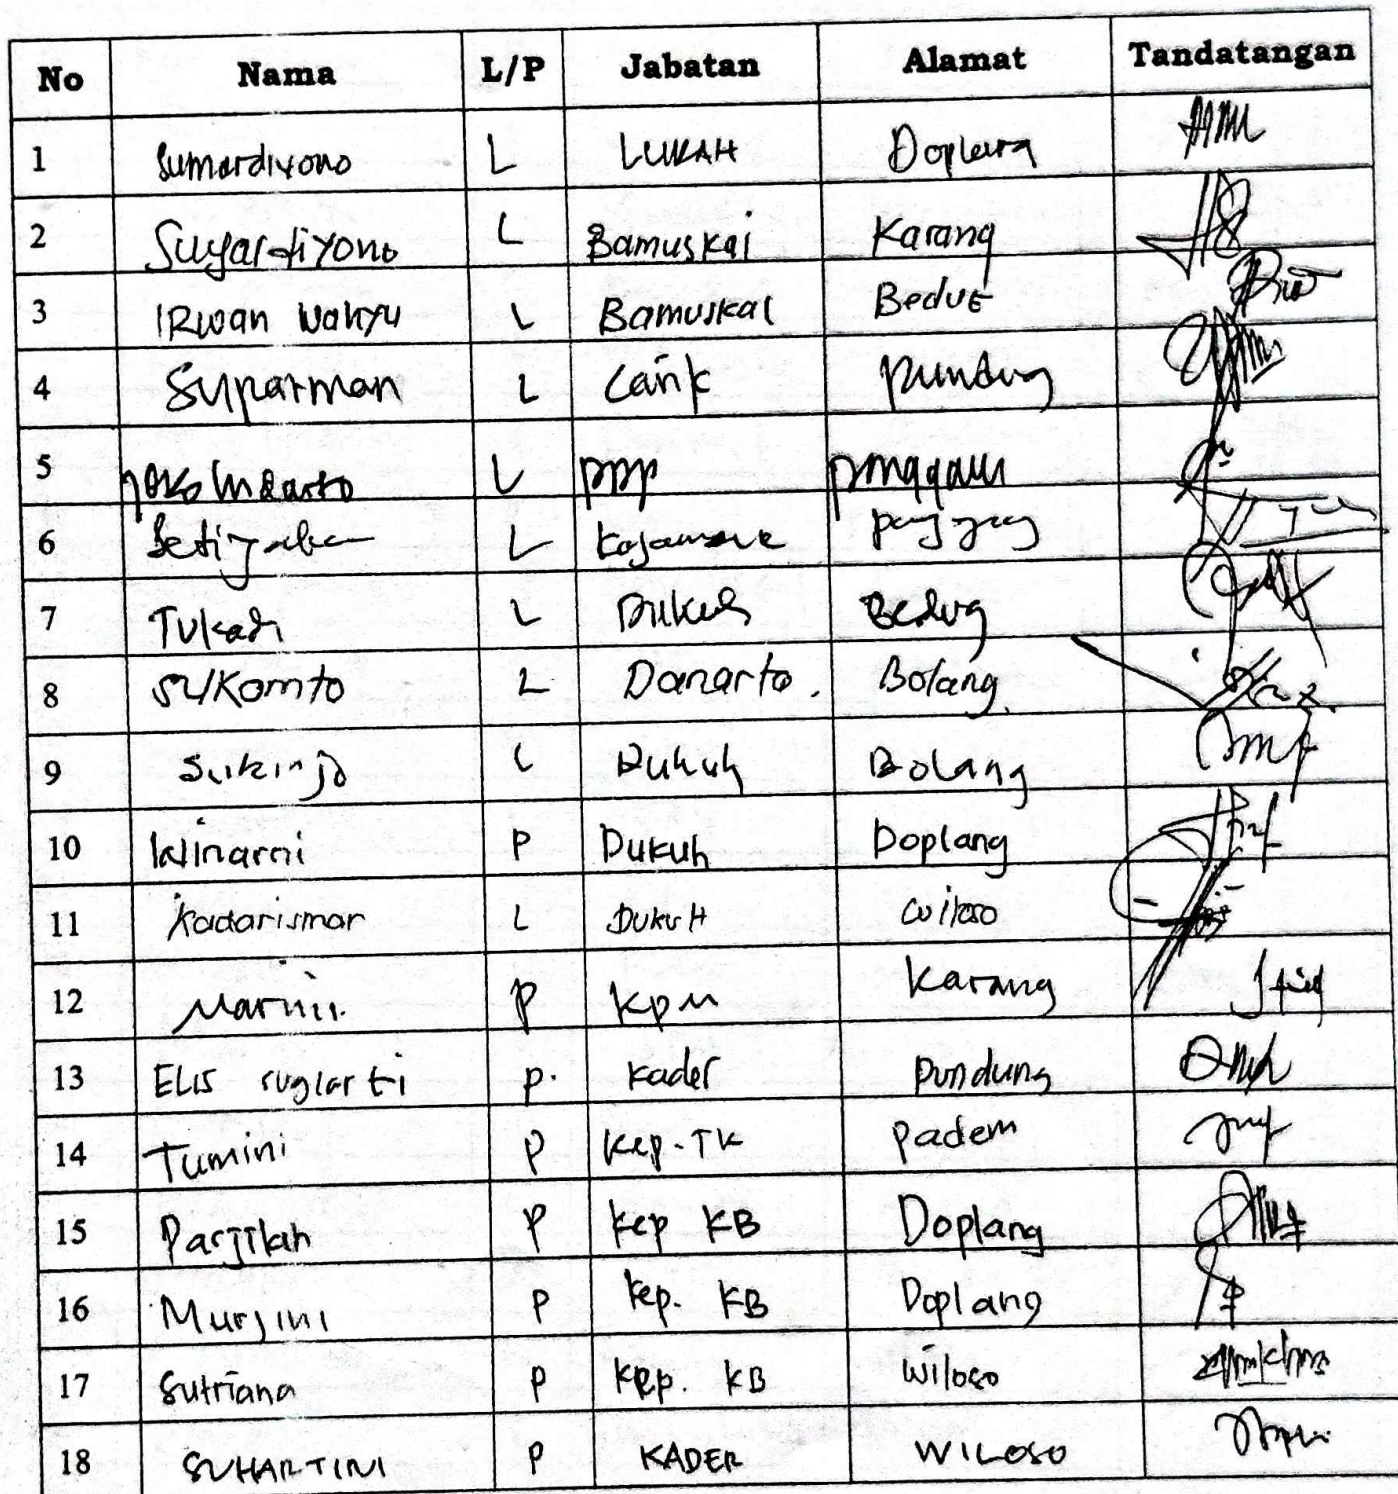 No Nama L/P Jabatan Alamat Tandatangan
1 Sumardiyono L LURAH Doplang
2 Sugardiyono L Bamuskal Karang
3 IRwan Wahyu L Bamuskal Bedug
4 Suparman L Carik Pundung
5 Joko Indarto L Panggang
6 L Panggang
7 Tukadi L Dukuh Bedug
8 Sukamto L Danarto. Bolang.
9 Sukirjo L Dukuh Bolang
10 Winarni P Dukuh Doplang
11 Kadarisman L DUKUH Wiloso
12 Marini. P KPM Karang
13 Elis sugiarti P. Kader Pundung
14 Tumini P Kep-TK Padem
15 Parjilah P Kep KB Doplang
16 Murjini P Kep. KB Doplang
17 Sutriana P Kep. KB Wiloso
18 SUHARTINI P KADER WILOSO